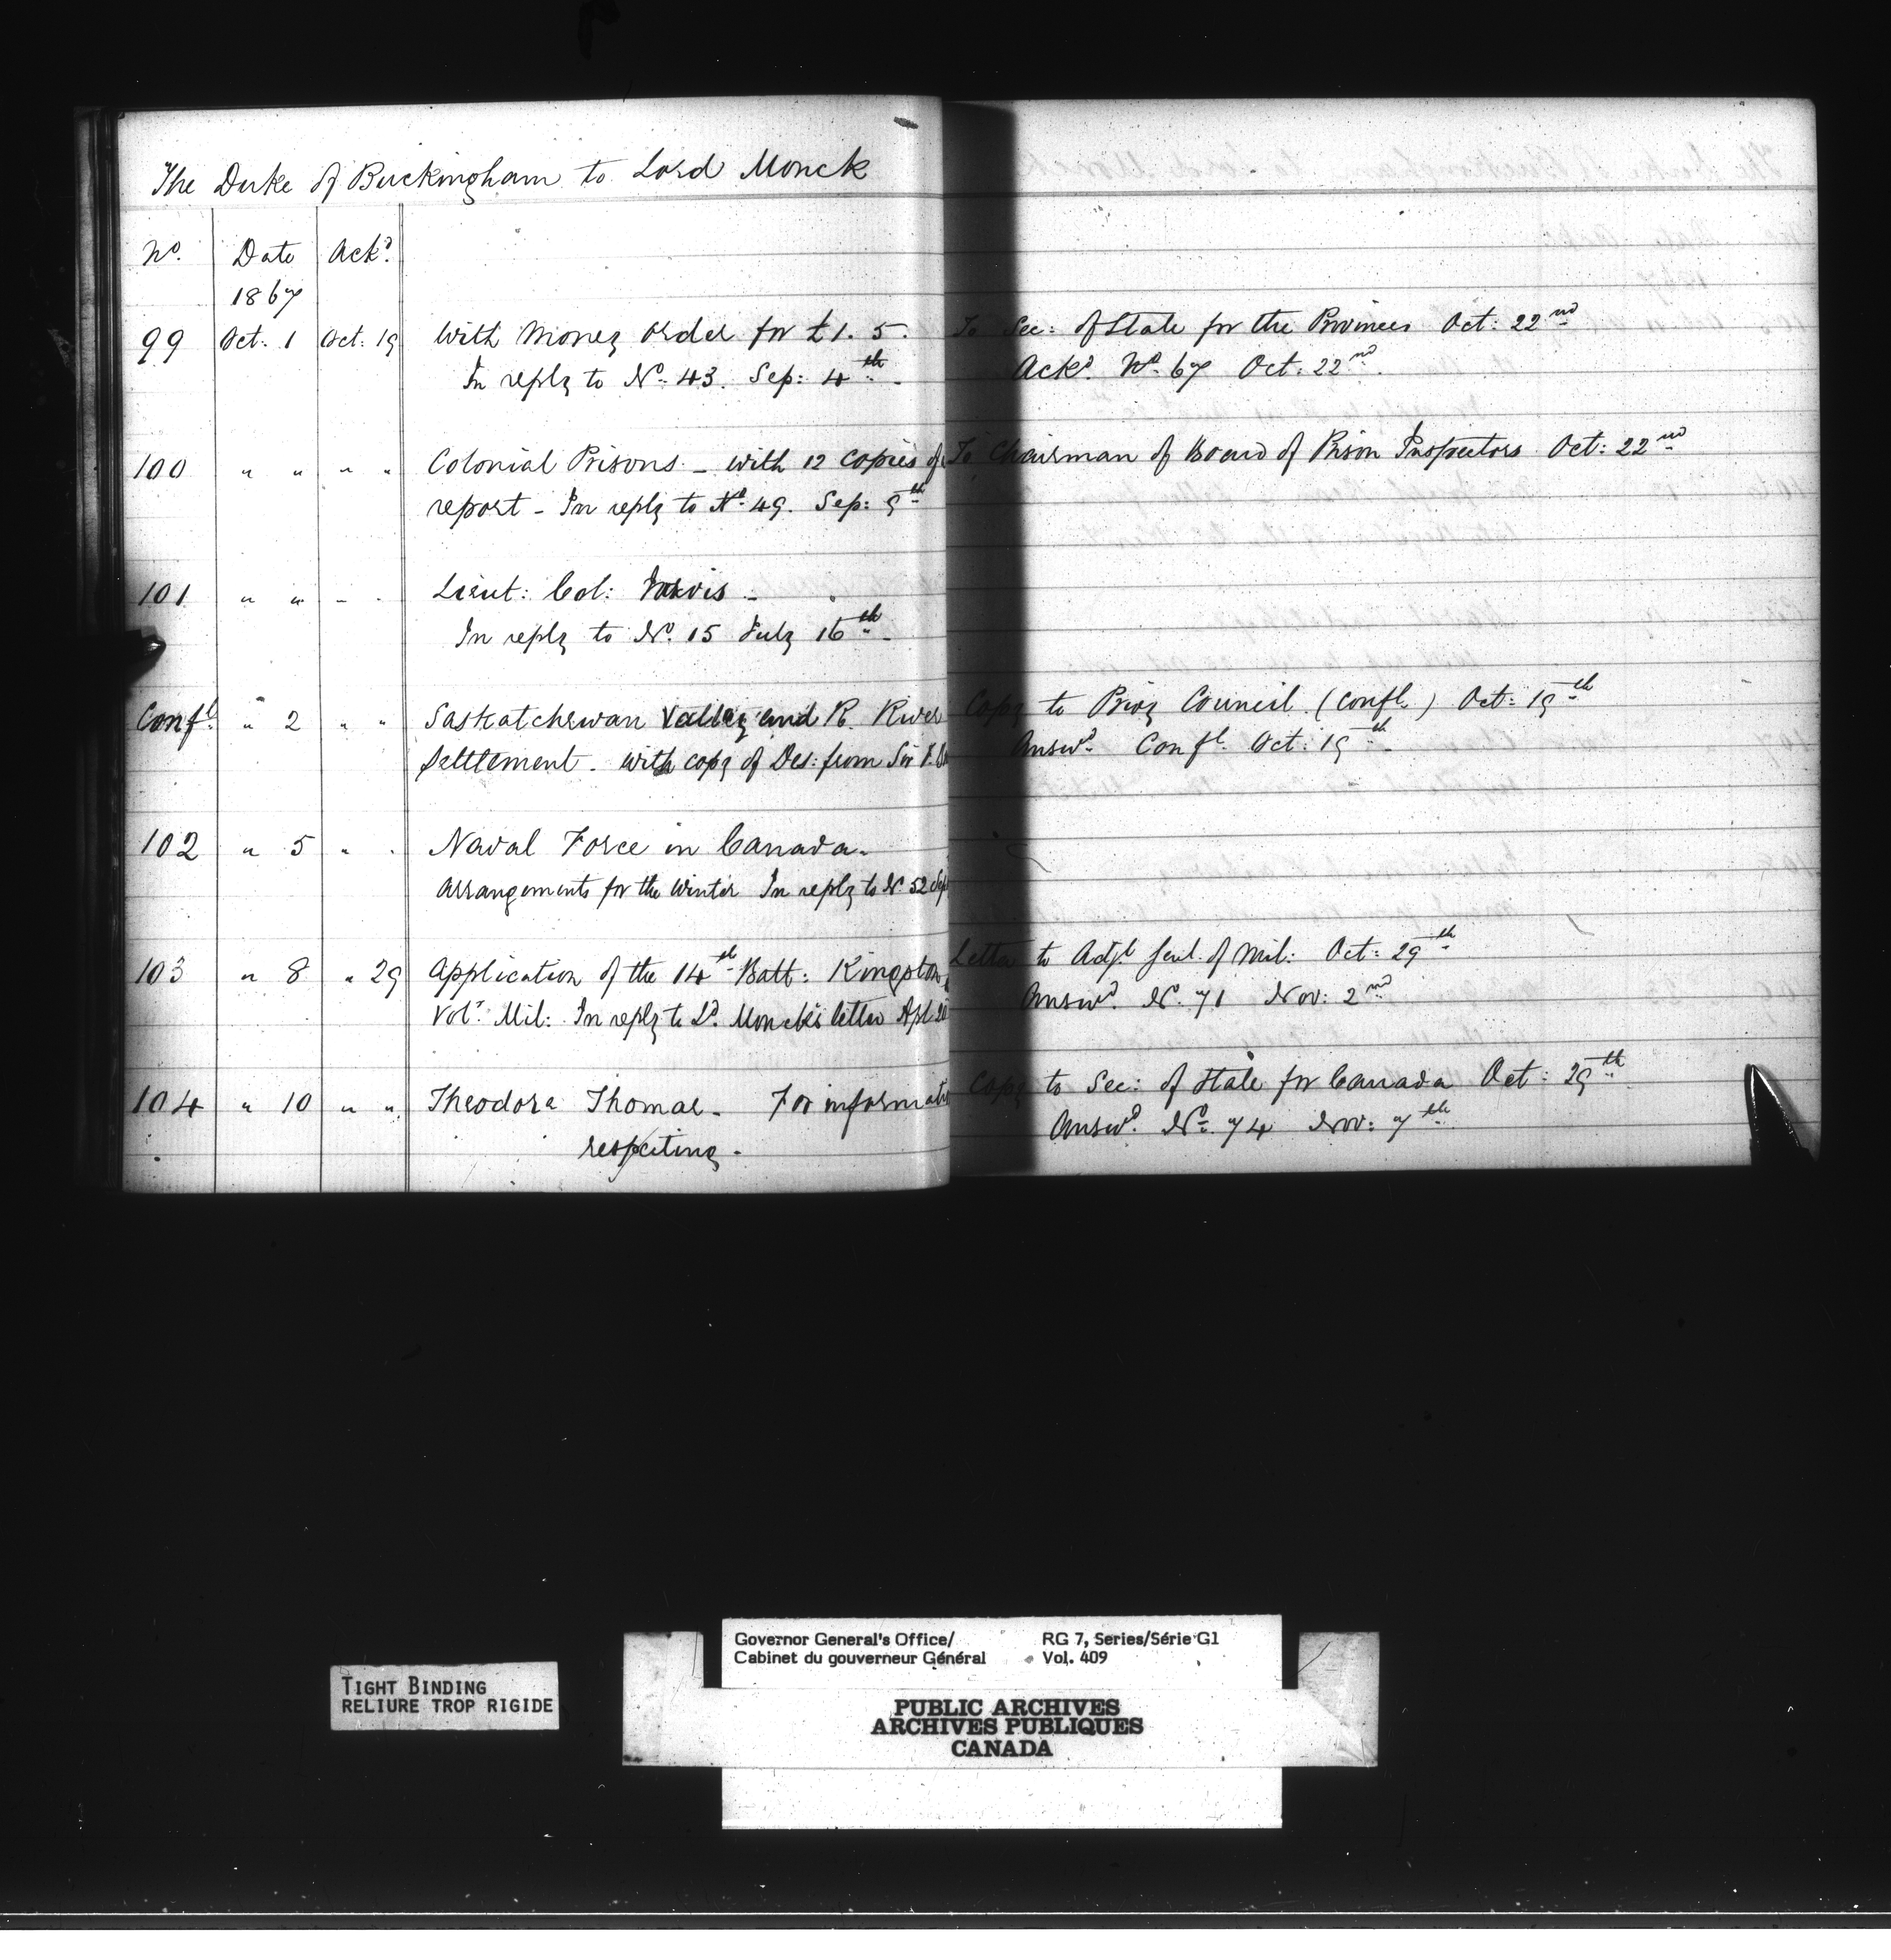 The Duke of Buckingham to Lord Monck
No. Date Ackd.
1867
99 Oct. 1 Oct: 19 With Money Order for £1. 5. To Sec: of State for the Provinces Oct: 22nd
In reply to No. 43. Sep: 4th - Ackd. No. 67 Oct: 22nd.
100 " " " " Colonial Prisons - with 12 copies of To Chairman of Board of Prison Inspectors Oct: 22nd
report - In reply to No. 49. Sep: 9th
101 " " - - Lieut: Col: Jarvis -
In reply to No. 15 July 16th -
Confl. " 2 " " Saskatchewan Valley and R. River Copy to Privy Council (confl.) Oct: 19th
Settlement - with copy of Des: from Sir F. Answd. Confl. Oct: 19th -
102 " 5 " " Naval Force in Canada -
Arrangements for the Winter In reply to No. 52 Sep
103 " 8 " 29 Application of the 14th Batt: Kingston Letter to Adjt. Genl. of Mil: Oct: 29th
Volr. Mil: In reply to Ld. Monck's letter Apl. 20 Answd. No. 71 Nov: 2nd
104 " 10 " " Theodore Thomas - For informati Copy to Sec: of State for Canada Oct: 29th
respecting - Answd. No. 74 Nov: 7th
Governor General's Office/ RG 7, Series/Série G1
Cabinet du gouverneur Général Vol. 409
TIGHT BINDING
RELIURE TROP RIGIDE
PUBLIC ARCHIVES
ARCHIVES PUBLIQUES
CANADA